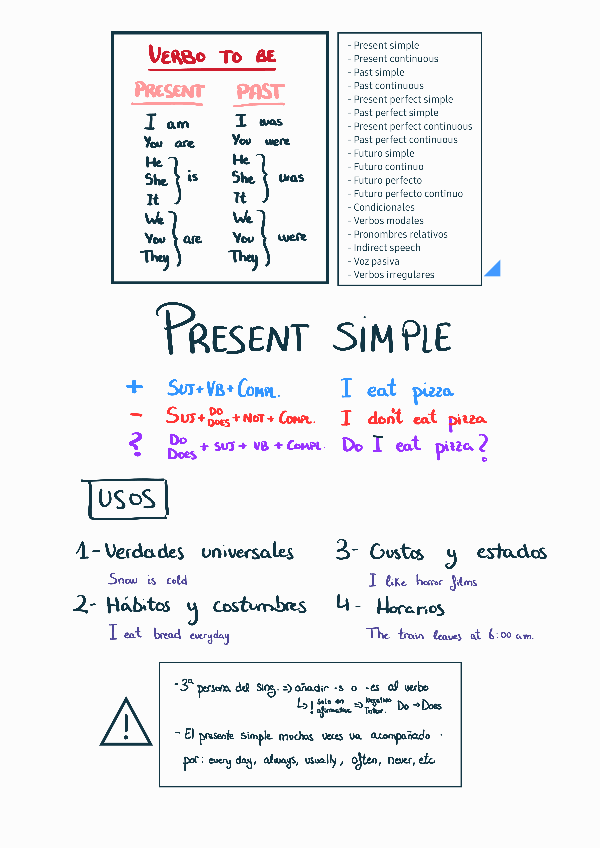 VERBO TO BE
PRESENT PAST
I am I was
You are You were
He He
She } is She } was
It It
We We
You } are You } were
They They
- Present simple
- Present continuous
- Past simple
- Past continuous
- Present perfect simple
- Past perfect simple
- Present perfect continuous
- Past perfect continuous
- Futuro simple
- Futuro continuo
- Futuro perfecto
- Futuro perfecto continuo
- Condicionales
- Verbos modales
- Pronombres relativos
- Indirect speech
- Voz pasiva
- Verbos irregulares
PRESENT SIMPLE
+ SUJ + VB + COMPL. I eat pizza
- SUJ + DO DOES + NOT + COMPL. I don't eat pizza
? DO DOES + SUJ + VB + COMPL. Do I eat pizza?
USOS
1- Verdades universales
Snow is cold
2- Hábitos y costumbres
I eat bread everyday
3- Gustos y estados
I like horror films
4- Horarios
The train leaves at 6:00 am.
!
- 3ª persona del sing. => añadir -s o -es al verbo
↳ ! Solo en afirmativa => Negativo Inter. Do → Does
- El presente simple muchas veces va acompañado
por: every day, always, usually, often, never, etc